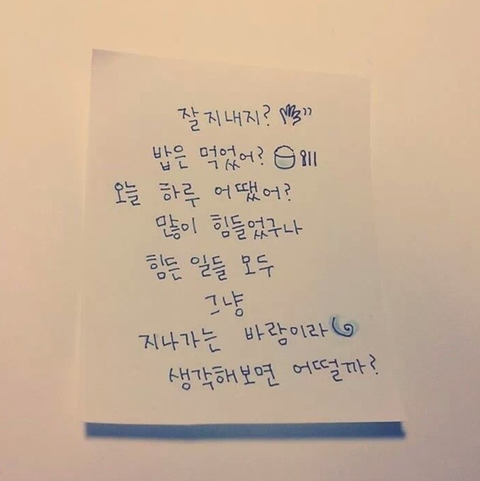 잘 지내지?
밥은 먹었어?
오늘 하루 어땠어?
많이 힘들었구나
힘든 일들 모두
그냥
지나가는 바람이라
생각해보면 어떨까?